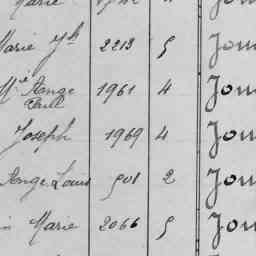 Marie
Marie Jh 2213 5 Jou
Mie Ange 1961 4 Jou
Joseph 1969 4 Jou
Ange Louis 501 2 Jou
Marie 2066 5 Jou